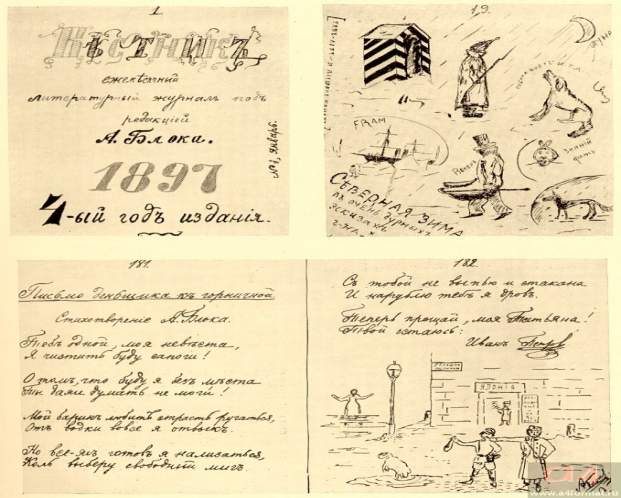 1.
Вѣстникъ
ежемѣсячный
литературный журналъ подъ
редакціей
А. Блока.
№1, январь.
1897
4-ый годъ изданія.
19.
FRAM
СѢВЕРНАЯ ЗИМА
въ очень дурныхъ
эскизахъ
181.
Письмо деньщика къ горничной
Стихотвореніе А. Блока.
Тебѣ одной, моя невѣста,
Я чистить буду сапоги!
О томъ, что буду я безъ мѣста
Ты даже думать не моги!
Мой баринъ любитъ страсть ругаться,
Отъ водки вовсе я отвыкъ.
Но все-жъ готовъ я нализаться,
Коль выберу свободный мигъ.
182.
Съ тобой не выпью и стакана
И нарублю тебѣ я дровъ.
Теперь прощай, моя Татьяна!
Твой остаюсь:
Иванъ Петровъ
www.a4format.ru